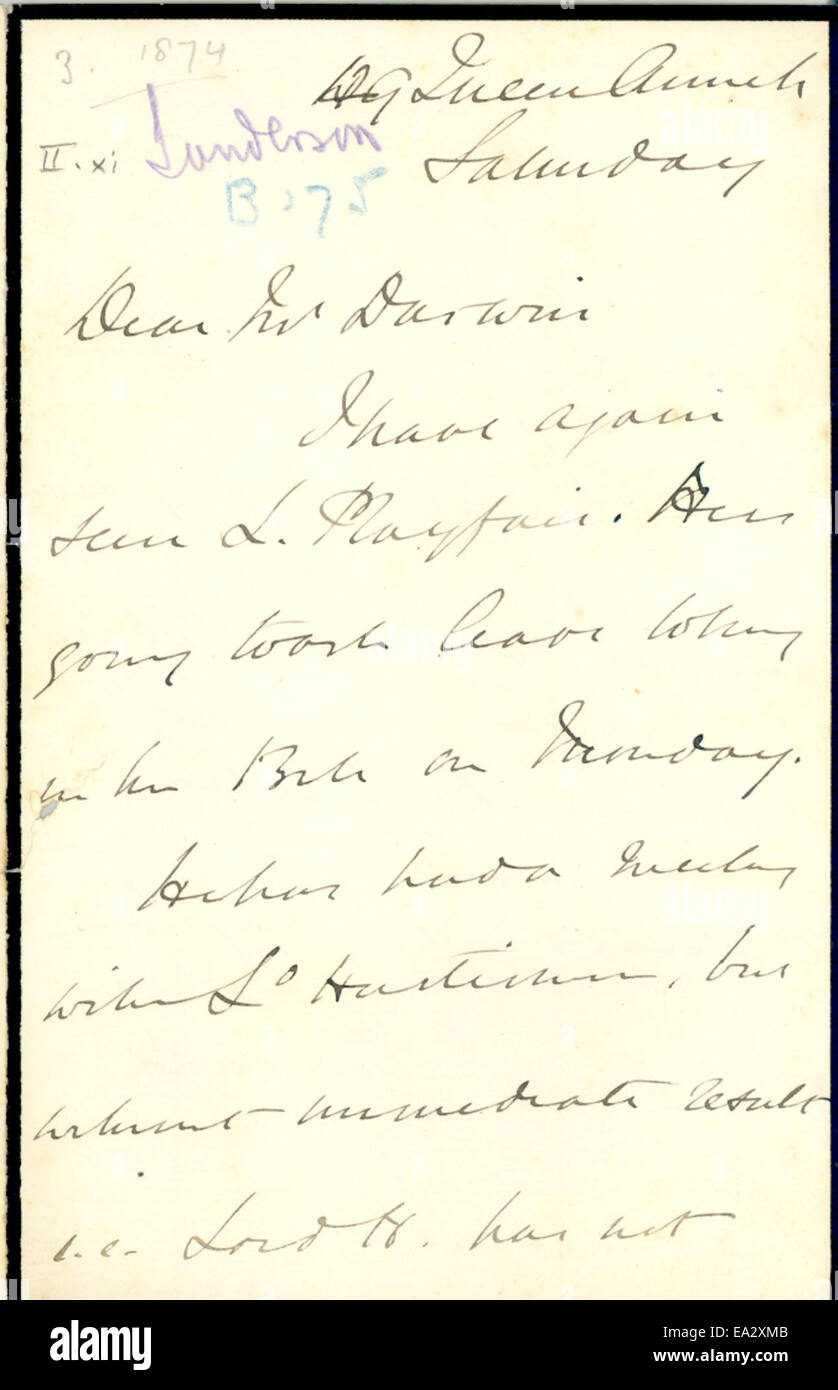 3. 1874
49 Queen Anne St
II. xi Sanderson
Saturday
B. 75
Dear Mr Darwin
I have again
seen L. Playfair. He is
going to ask leave to bring
in his Bill on Monday.
He has had a Meeting
with Ld Hartismere, but
without immediate result
i.e. Lord H. has not
alamy
Image ID: EA2XMB
www.alamy.com